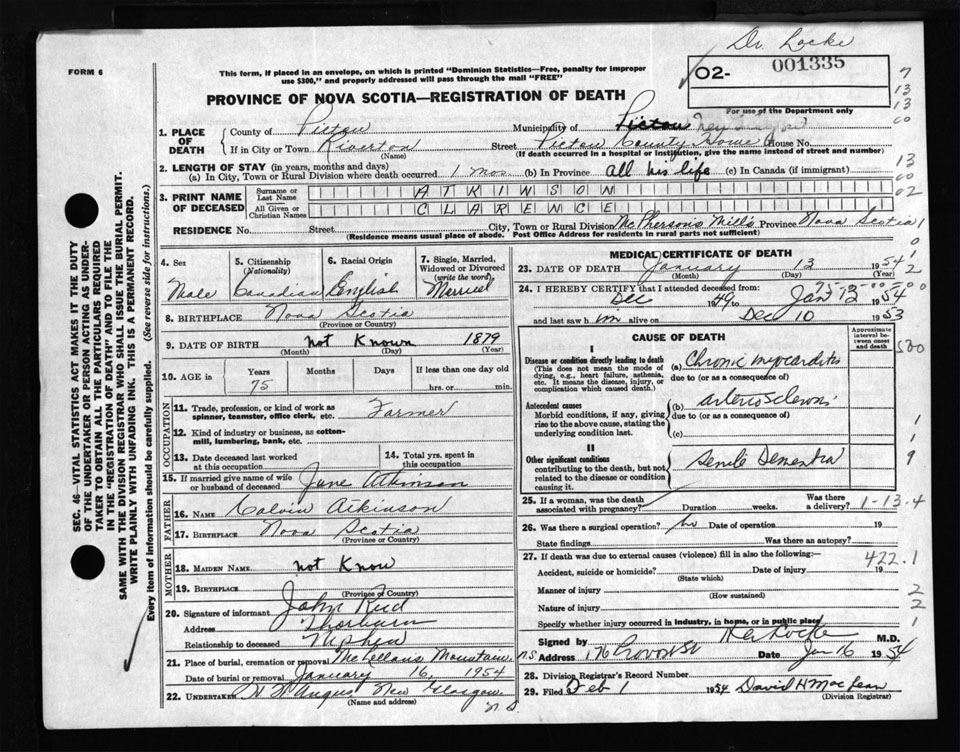 Dr. Locke
FORM 6
This form, if placed in an envelope, on which is printed "Dominion Statistics—Free, penalty for improper
use $300," and properly addressed will pass through the mail "FREE"
O2- 001335
For use of the Department only
PROVINCE OF NOVA SCOTIA—REGISTRATION OF DEATH
1. PLACE OF DEATH
County of Pictou Municipality of Pictou New Glasgow
If in City or Town Riverton (Name) Street Pictou County Home House No.
(If death occurred in a hospital or institution, give the name instead of street and number)
2. LENGTH OF STAY (in years, months and days)
(a) In City, Town or Rural Division where death occurred 1 mos. (b) In Province all his life (c) In Canada (if immigrant)
3. PRINT NAME OF DECEASED
Surname or Last Name ATKINSON
All Given or Christian Names CLARENCE
RESIDENCE No. Street City, Town or Rural Division McPhersons Mills Province Nova Scotia
(Residence means usual place of abode. Post Office Address for residents in rural parts not sufficient)
4. Sex Male
5. Citizenship (Nationality) Canadian
6. Racial Origin English
7. Single, Married, Widowed or Divorced (write the word) Married
8. BIRTHPLACE Nova Scotia
(Province or Country)
9. DATE OF BIRTH not Known 1879
(Month) (Day) (Year)
10. AGE in Years 75 Months Days If less than one day old
hrs. or min.
OCCUPATION
11. Trade, profession, or kind of work as spinner, teamster, office clerk, etc. Farmer
12. Kind of industry or business, as cotton-mill, lumbering, bank, etc.
13. Date deceased last worked at this occupation
14. Total yrs. spent in this occupation
15. If married give name of wife or husband of deceased Jane Atkinson
FATHER
16. Name Calvin Atkinson
17. Birthplace Nova Scotia
(Province or Country)
MOTHER
18. Maiden Name not Know
19. Birthplace
(Province or Country)
20. Signature of informant John Reid
Address Thorburn
Relationship to deceased Nephew
21. Place of burial, cremation or removal McLellans Mountain
Date of burial or removal January 16, 1954
22. Undertaker Angus New Glasgow N.S
(Name and address)
MEDICAL CERTIFICATE OF DEATH
23. DATE OF DEATH January 13 1954
(Month) (Day) (Year)
24. I HEREBY CERTIFY that I attended deceased from:
Dec 1949 to Jan 12 1954
and last saw him alive on Dec 10 1953
CAUSE OF DEATH
Approximate interval between onset and death
I
Disease or condition directly leading to death
(This does not mean the mode of dying, e.g., heart failure, asthenia, etc. It means the disease, injury, or complication which caused death.)
(a) Chronic myocarditis
due to (or as a consequence of)
Antecedent causes
Morbid conditions, if any, giving rise to the above cause, stating the underlying condition last.
(b) arteriosclerosis
due to (or as a consequence of)
(c)
II
Other significant conditions
contributing to the death, but not related to the disease or condition causing it.
Senile Dementia
25. If a woman, was the death associated with pregnancy? Duration weeks. Was there a delivery? 1-13.4
26. Was there surgical operation? no Date of operation 19
State findings Was there an autopsy?
27. If death was due to external causes (violence) fill in also the following:— 422.1
Accident, suicide or homicide? Date of injury 19
(State which)
Manner of injury
(How sustained)
Nature of injury
Specify whether injury occurred in industry, in home, or in public place
Signed by M.D.
Address Provost St N.S Date Jan 16 1954
28. Division Registrar's Record Number
29. Filed Feb 1 1954 David H MacLean
(Division Registrar)
SEC. 46—VITAL STATISTICS ACT MAKES IT THE DUTY
OF THE UNDERTAKER OR PERSON ACTING AS UNDER-
TAKER TO OBTAIN ALL THE PARTICULARS REQUIRED
IN THE "REGISTRATION OF DEATH" AND TO FILE THE
SAME WITH THE DIVISION REGISTRAR WHO SHALL ISSUE THE BURIAL PERMIT.
WRITE PLAINLY WITH UNFADING INK. THIS IS A PERMANENT RECORD.
Every item of information should be carefully supplied. (See reverse side for instructions.)